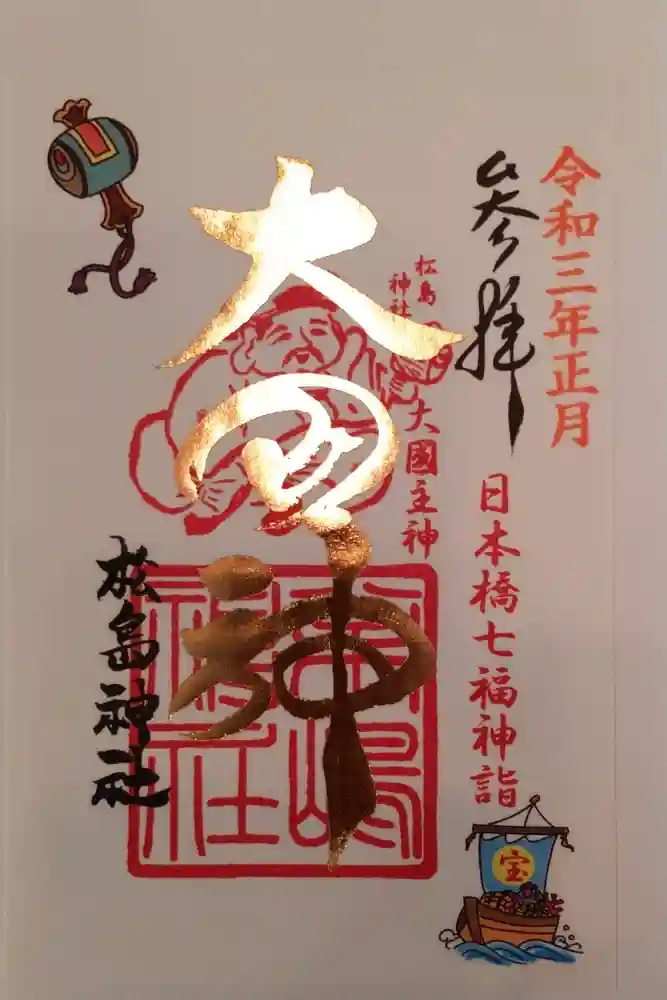 令和三年正月
参拝
日本橋七福神詣
松島
神社
大國主神
大国神
松島神社
宝